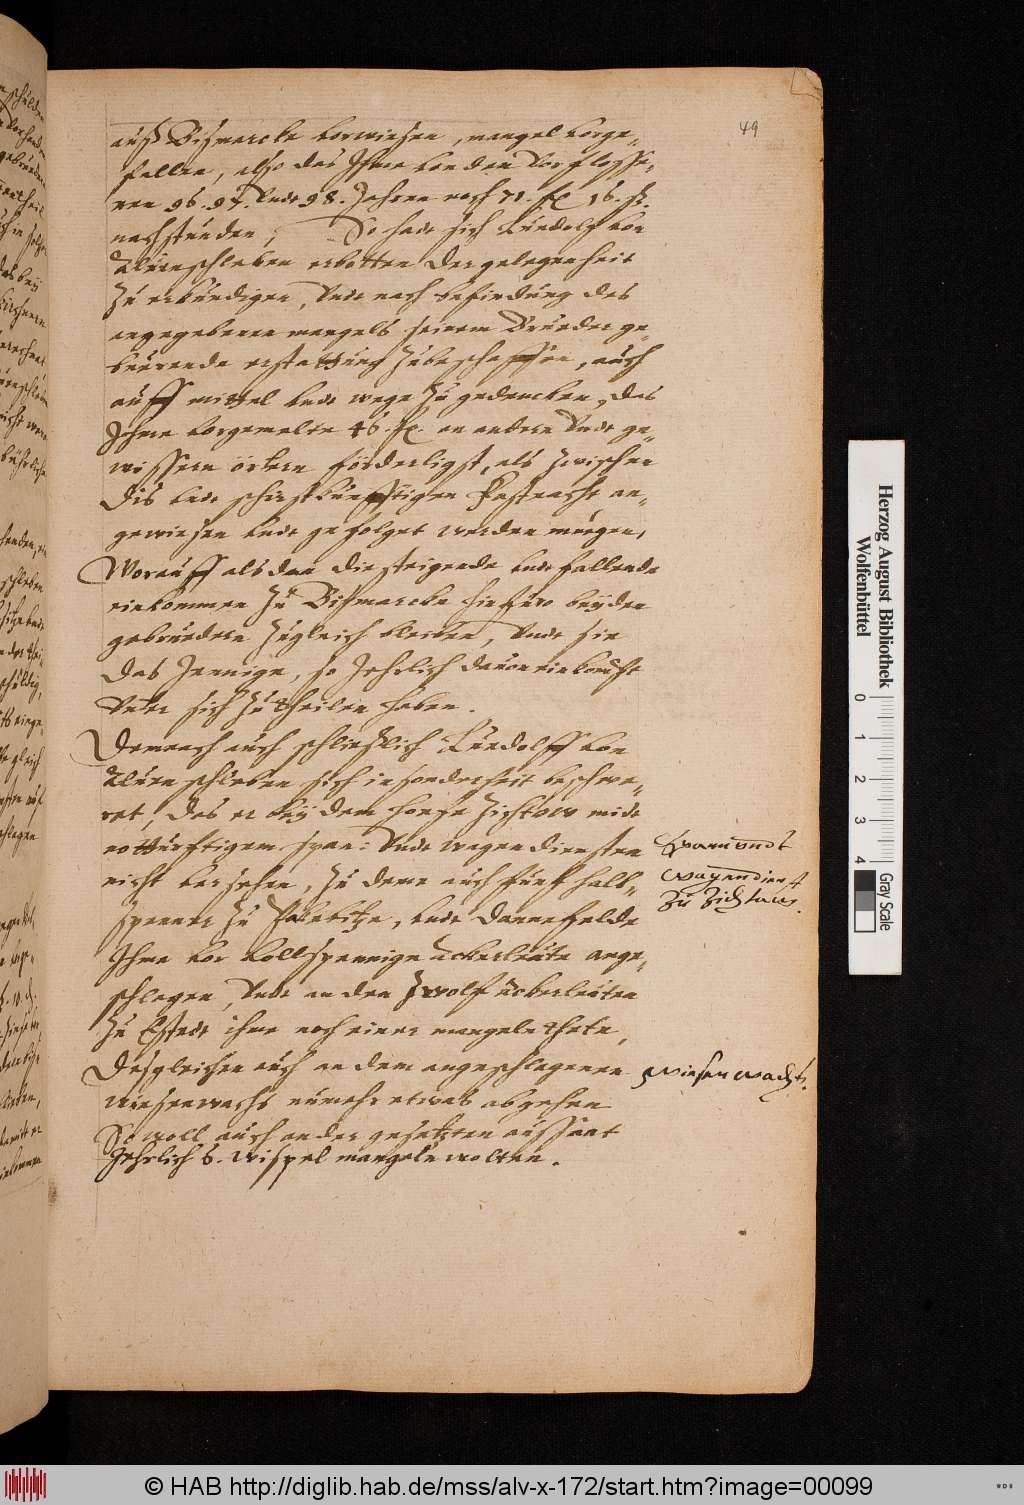 49
auß Bismarcke vorwiesen, mangel vorge„
fallen, also das Ihme von den vorflosse„
nen 96. 97. Unde 98. Jahren noch 71. fl. 16. ß.
nachstunden; So hadt sich Ludolf von
Alvenschleben erbotten der gelegenheit
zu erkundigen, Unde nach befindung des
angegebenen mangels seinem Bruder ge„
burende erstattung zubeschaffen, auch
auff mittel unde wege zu gedencken, das
Ihme vorgemelte 46. fl. an andern Unde ge„
wissern örtern förderligst, als zwischen
dis unde schirstkunfftigen Fastnacht an„
gewiesen unde gefolget werden mugen,
Worauff als dan die steigende unde fallende
einkommen zu Bismarcke hinfuro beyden
gebruedern zugleich bleiben, Unde sie
das Jennige, so Jehrlich dauon einkombt
Unter sich zu theilen haben.
Demnach auch schließlich Ludolff von
Alvenschleben sich insonderheit beschwe„
ret, das er bey dem hoefe Zichtow midt
notturftigem span: Unde wagen diensten
nicht versehen, zu deme auch funf halb„
spenner zu , unde Dannefelde
Ihme vor vollspennige Ackerleute ange„
schlagen, Unde an den Zwolf Ackerleuten
zu Estedt ihme noch einer mangeln thete,
Desgleichen auch an dem angeschlagenen
wiesenwachs nunmehr etwas abgehen
So woll auch an der gesatzten aussaat
Jehrlich 6. Wispel mangeln wolten.
Spann vndt
Wagendienst
Zu Zichtaw.
Wiesenwachß.
Herzog August Bibliothek
Wolfenbüttel
0 1 2 3 4
Gray Scale
© HAB http://diglib.hab.de/mss/alv-x-172/start.htm?image=00099